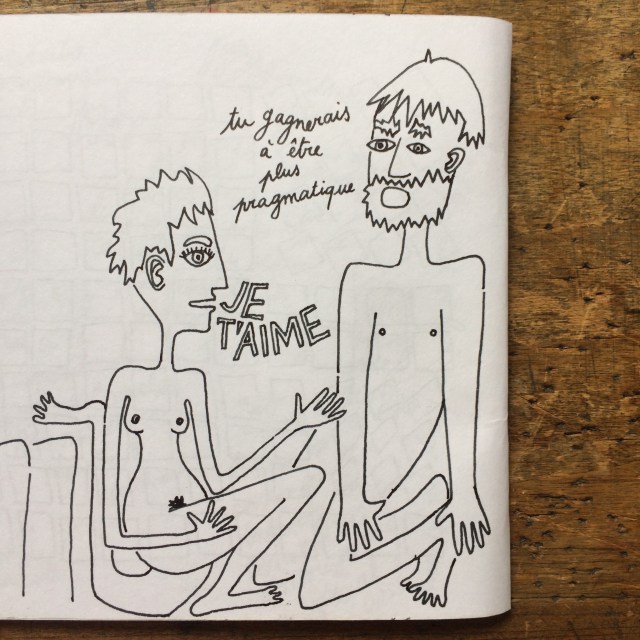 tu gagnerais
à être
plus
pragmatique
JE
T'AIME